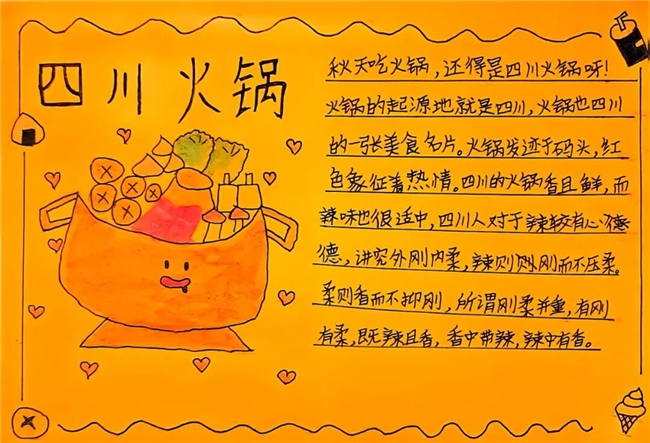 四川火锅
秋天吃火锅，还得是四川火锅呀！
火锅的起源地就是四川，火锅也四川
的一张美食名片。火锅发迹于码头，红
色象征着热情。四川的火锅香且鲜，而
辣味也很适中，四川人对于辣较有心得
德，讲究外刚内柔，辣则则刚而不压柔。
柔则香而不抑刚，所谓刚柔并重，有刚
有柔，既辣且香，香中带辣，辣中有香。